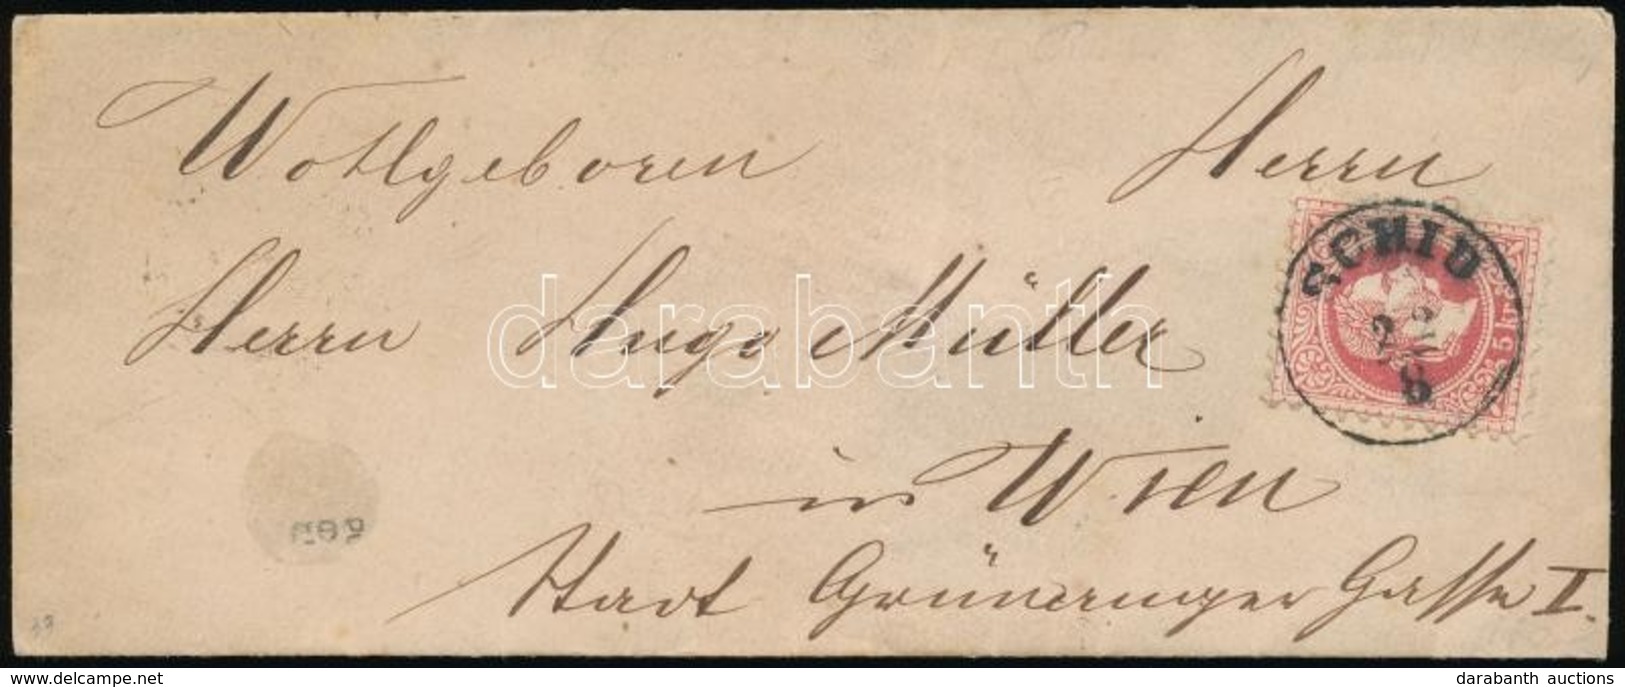 Wohlgeboren Herrn
Herrn Hugo Müller
in Wien
Stadt Grünanger Gasse I.
5 kr
22
8
darabanth
www.delcampe.net
darabanth auctions